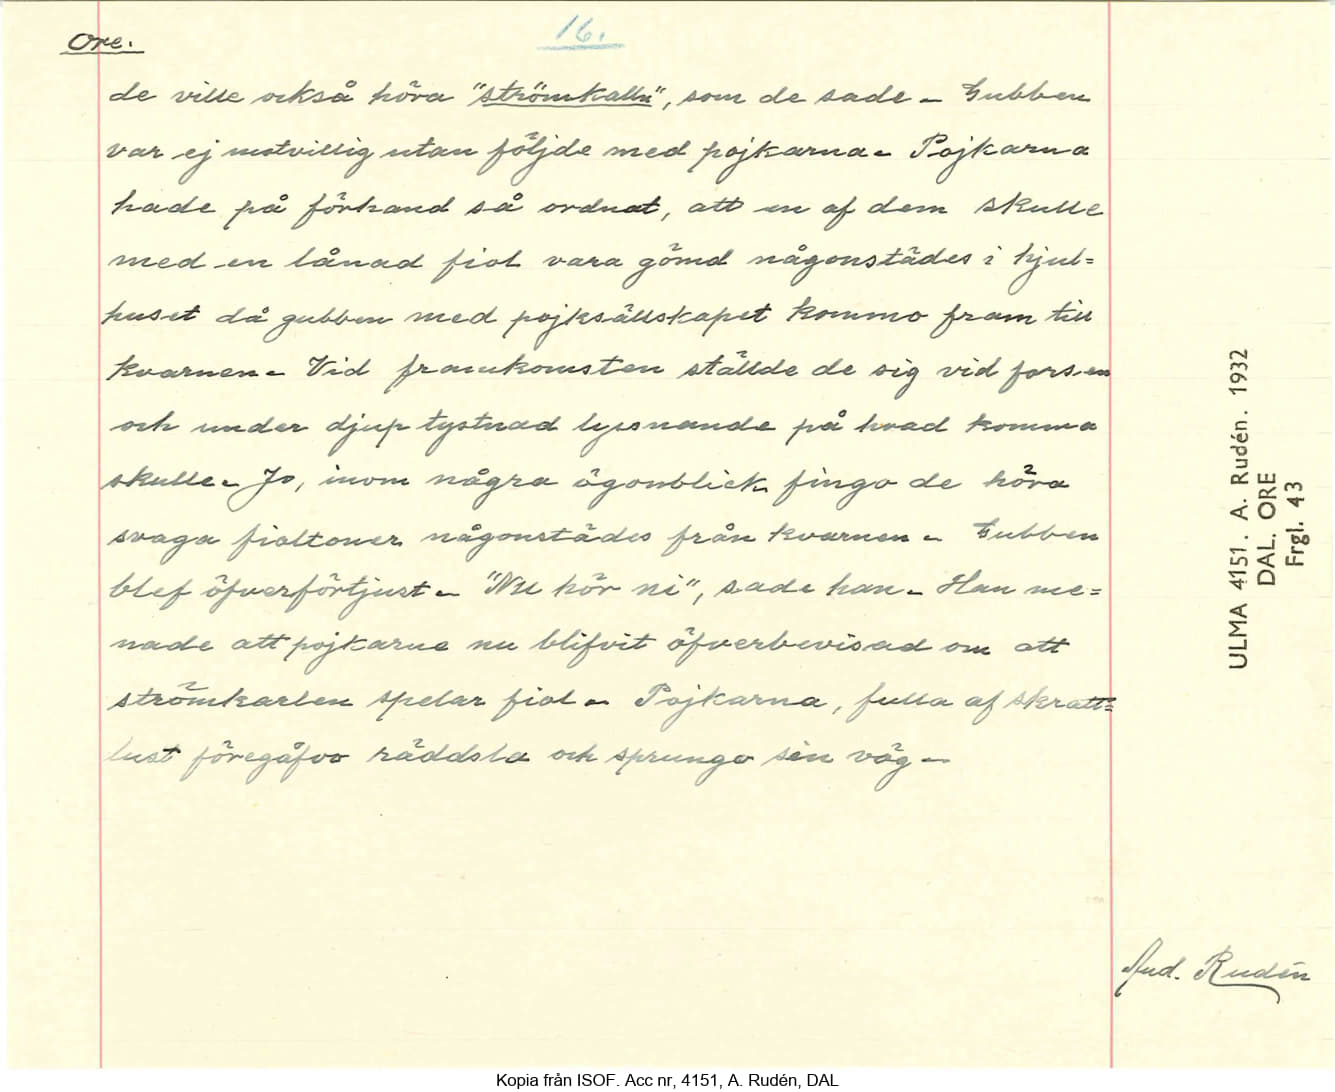 Ore.
16.
de ville också höra "strömkalln", som de sade. Gubben
var ej motvillig utan följde med pojkarna. Pojkarna
hade på förhand så ordnat, att en af dem skulle
med en lånad fiol vara gömd någonstädes i hjul=
huset då gubben med pojksällskapet kommo fram till
kvarnen. Vid framkomsten ställde de sig vid forsen
och under djup tystnad lyssnande på hvad komma
skulle. Jo, inom några ögonblick fingo de höra
svaga fioltoner någonstädes från kvarnen. Gubben
blef öfverförtjust. "Nu hör ni", sade han. Han me=
nade att pojkarne nu blifvit öfverbevisad om att
strömkarlen spelar fiol. Pojkarna, fulla af skratt=
lust föregåfvo räddsla och sprungo sin väg.
ULMA 4151. A. Rudén. 1932
DAL. ORE
Frgl. 43
And. Rudén
Kopia från ISOF. Acc nr, 4151, A. Rudén, DAL